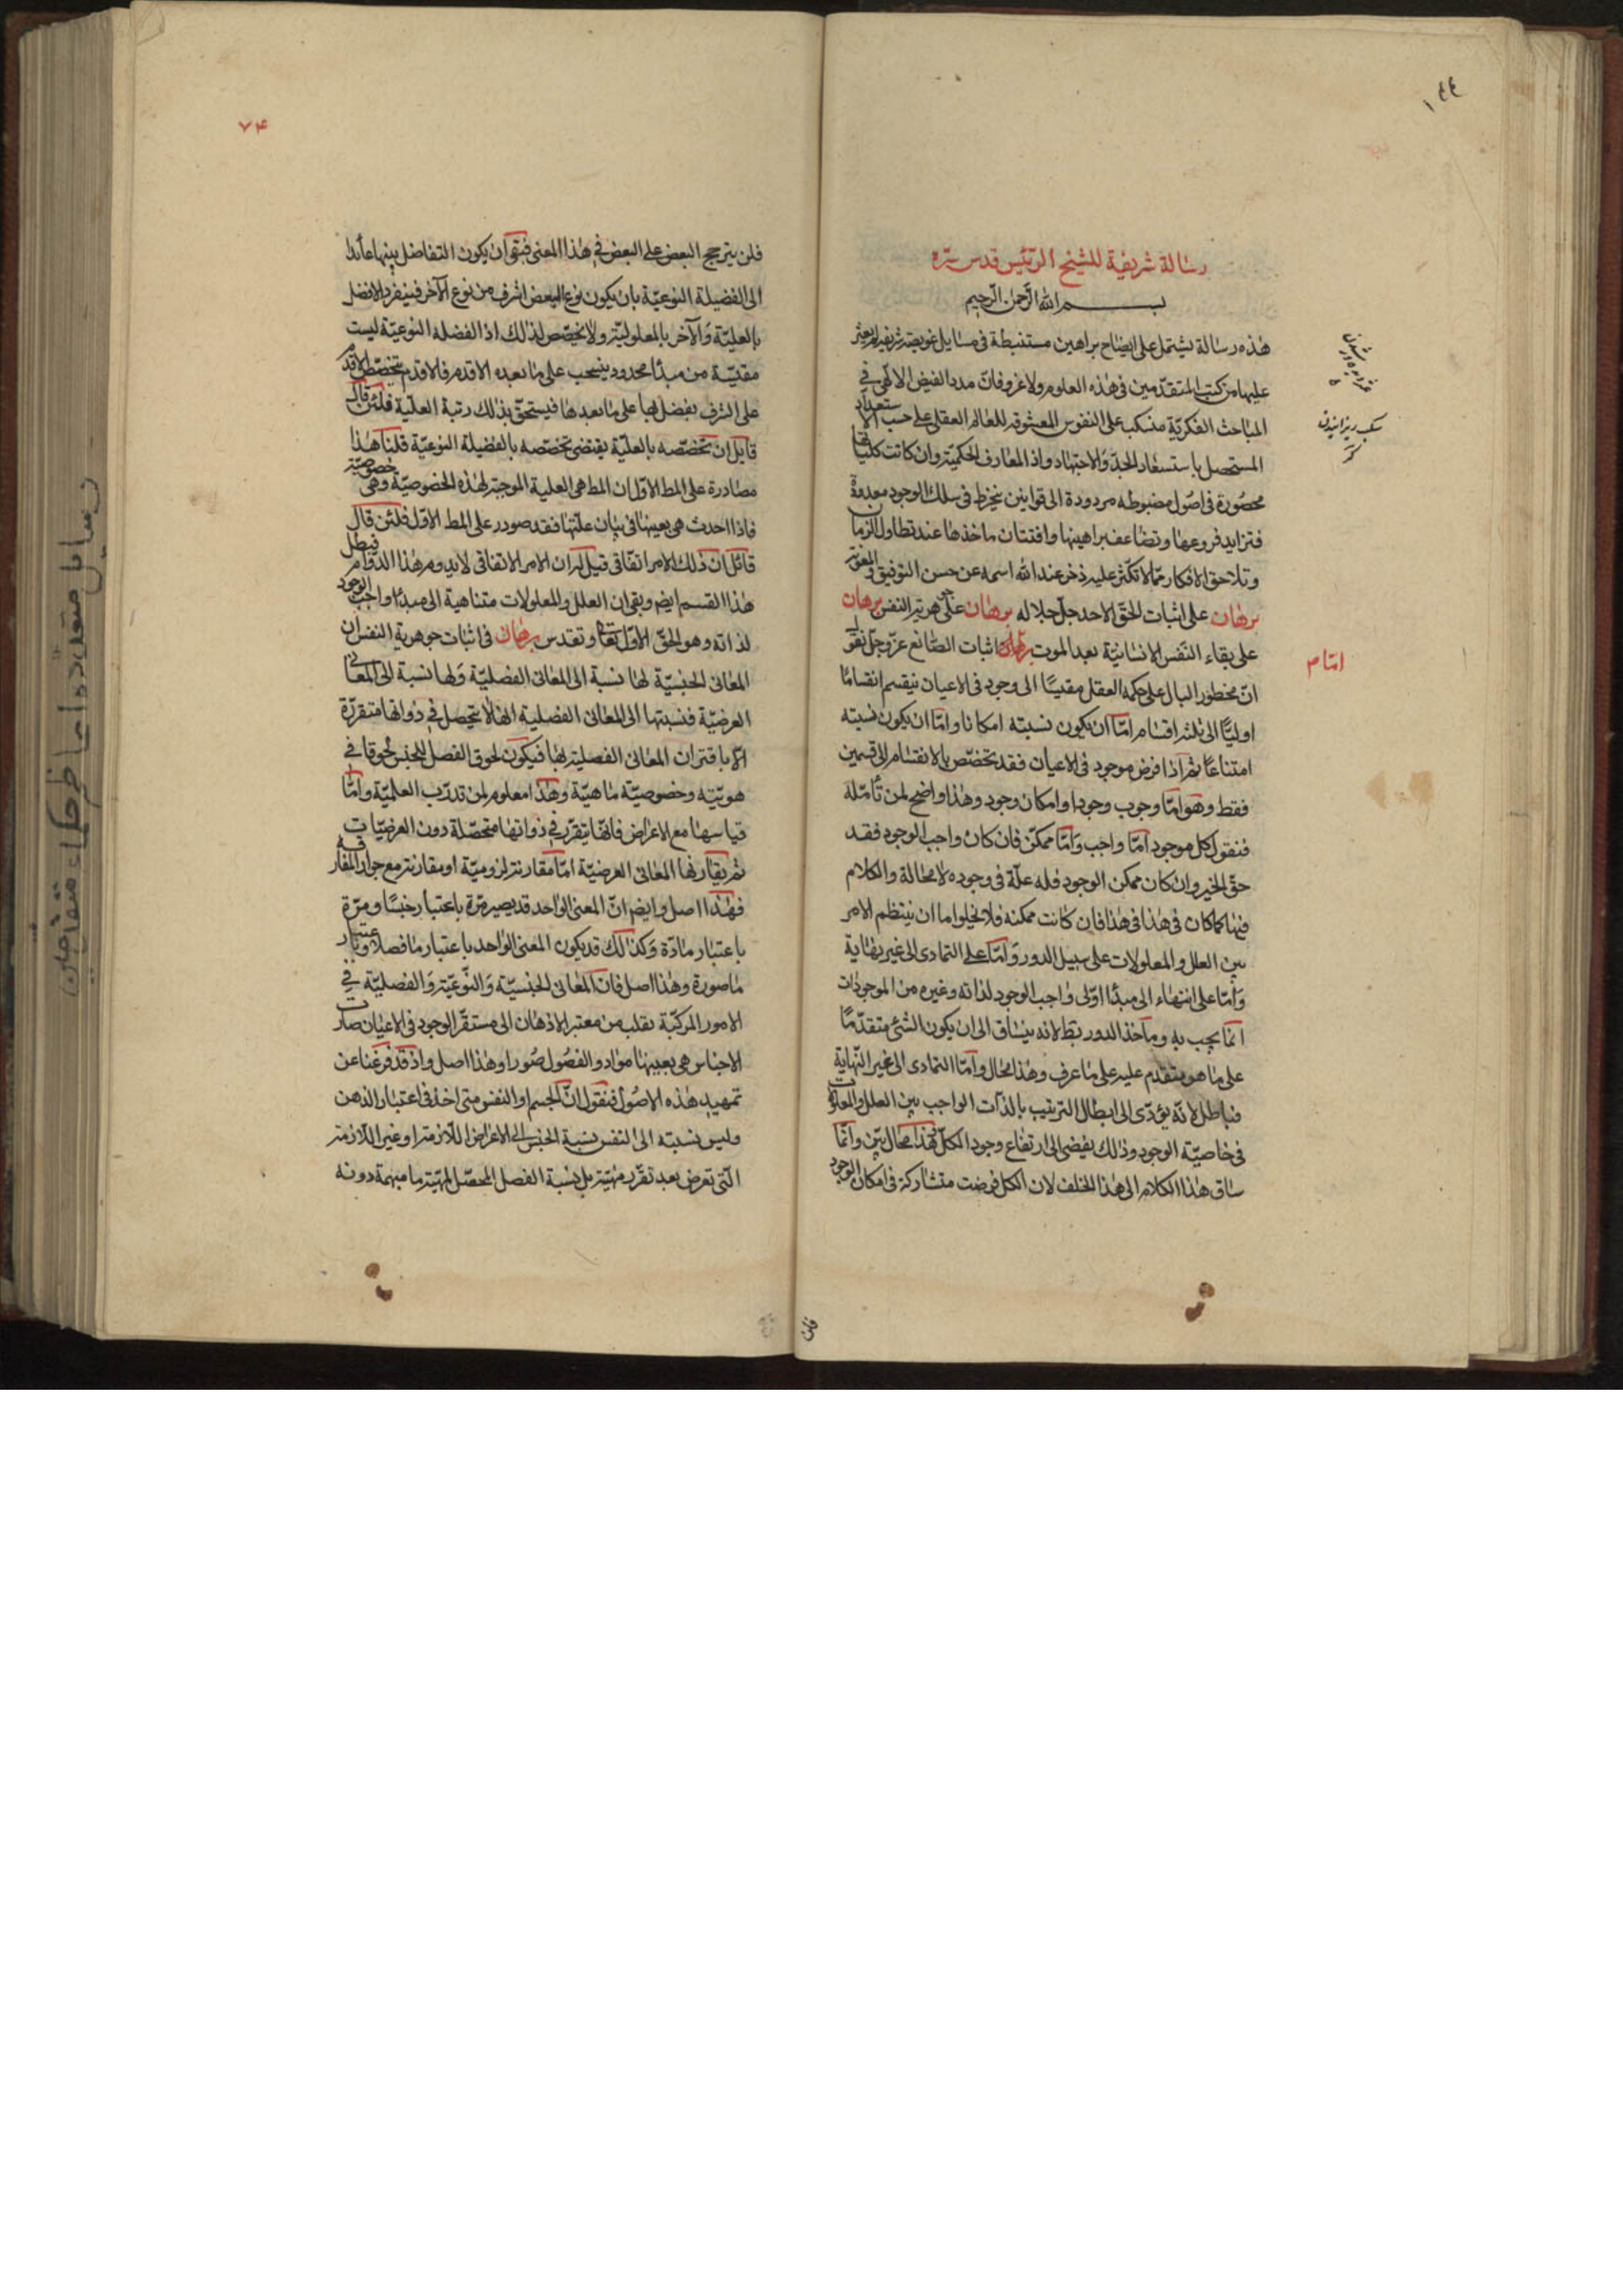 رسالة شريفية للشيخ الرئيس قدس سره
بسم الله الرحمن الرحيم
هذه رسالة يشتمل على ايضاح براهين مستنبطة فى مسايل عويصة شريفة لم يعثر
عليها من كتب المتقدمين فى هذه العلوم ولا غرو فان مدد الفيض الالهى فى
المباحث الفكرية منسكب على النفوس المعشوقه للعالم العقلى على حسب الاستعداد
المستحصل باستسعاد الجد والاجتهاد واذ المعارف الحكمية وان كانت كلياتها
محصورة فى اصول مضبوطه مردودة الى قوانين ينخرط فى سلك الوجود معدودة
فتزايد فروعها وتضاعف براهينها وافتنان ماخذها عند تطاول الزمان
وتلاحق الافكار مما لا تكثر عليه ذخر عند الله اسمه عن حسن التوفيق والمعونة
برهان على اثبات الحق الاحد جل جلاله برهان على جوهرية النفس برهان
على بقاء النفس الانسانية بعد الموت برهان اثبات الصانع عز وجل نقول
ان مخطور البال على حكم العقل مقيسا الى وجود فى الاعيان ينقسم انقساما
اوليا الى ثلثه اقسام اما ان يكون نسبته امكانا واما ان يكون نسبته
امتناعا ثم اذا فرض موجود فى الاعيان فقد تخصص بالانقسام الى قسمين
فقط وهو اما وجوب وجود او امكان وجود وهذا واضح لمن تأمله
فنقول كل موجود اما واجب واما ممكن فان كان واجب الوجود فقد
حق الخير وان كان ممكن الوجود فله علة فى وجوده لا محالة والكلام
فيها كما كان فى هذا فى هذا فان كانت ممكنه فلا يخلوا اما ان ينتظم الامر
بين العلل والمعلولات على سبيل الدور واما على التمادى الى غير نهاية
واما على انتهاء الى مبدأ اولى واجب الوجود لذاته وغيره من الموجودات
انما يجب به وماخذ الدور بط لانه ينساق الى ان يكون الشئ متقدما
على ما هو متقدم عليه على ما عرف وهذا محال واما التمادى الى غير النهاية
فباطل لانه يؤدى الى ابطال الترتيب بالذات الواجب بين العلل والمعلولات
فى خاصية الوجود وذلك يفضى الى ارتفاع وجود الكل فهذا محال بين وانما
ساق هذا الكلام الى هذا الخلف لان الكل فرضت متشاركة فى امكان الوجود
امام
فلن يترجح البعض على البعض فى هذا المعنى فبقى ان يكون التفاضل بينها عائدا
الى الفضيلة النوعية بان يكون نوع البعض اشرف من نوع الآخر فينفرد الافضل
بالعلية والآخر بالمعلولية ولا تخصص لذلك اذ الفضله النوعية ليست
مقيسة من مبدأ محدود ينسحب على ما بعده الاقدم فالاقدم تخصص الاقدم
على الشرف بفضل لها على ما بعدها فيستحق بذلك رتبة العلية فلئن قال
قايل ان تخصصه بالعلية يقتضى تخصصه بالفضيلة النوعية قلنا هذا
مصادرة على المط الاول ان المط هى العلية الموجبة لهذه الخصوصية وهى خصوصية
فاذا احدث هى بعينها فى بيان علتها فقد صودر على المط الاول فلئن قال
قائل ان ذلك الامر اتفاقى قيل له ان الامر الاتفاقى لا يدوم هذا الدوام فبطل
هذا القسم ايض وبقى ان العلل والمعلولات متناهية الى مبدأ واجب الوجود
لذاته وهو الحق الاول تعا وتقدس برهان فى اثبات جوهرية النفس ان
المعانى الجنسية لها نسبة الى المعانى الفصلية ولها نسبة الى المعانى
العرضية فنسبتها الى المعانى الفصلية انها لا يتحصل فى ذواتها متقررة
الا باقتران المعانى الفصلية بها فيكون لحوق الفصل للجنس لحوقا فى
هويته وخصوصية ماهية وهذا معلوم لمن تدرب العلمية واما
قياسها مع الاعراض فانها يتقرر فى ذواتها متحصلة دون العرضيات
ثم يقارنها المعانى العرضية اما مقارنة لزومية او مقارنة مع جواز المفارقة
فهذا اصل وايضا ان المعنى الواحد قد يصير مرة باعتبار جنسا ومرة
باعتبار مادة وكذلك قد يكون المعنى الواحد باعتبار ما فصلا وباعتبار
ما صورة وهذا اصل فان المعانى الجنسية والنوعية والفصلية فى
الامور المركبة تقلب من معتبر الاذهان الى مستقر الوجود فى الاعيان صارت
الاجناس هى بعينها مواد والفصول صورا وهذا اصل واذ قد فرغنا عن
تمهيد هذه الاصول فنقول ان الجسم او النفس متى اخذ فى اعتبار الذهن
وليس نسبته الى النفس نسبة الجنس الى الاعراض اللازمة او غير اللازمة
التى تعرض بعد تقرر مهيته بل نسبة الفصل المحصل لمهية ما مبهمة دونه